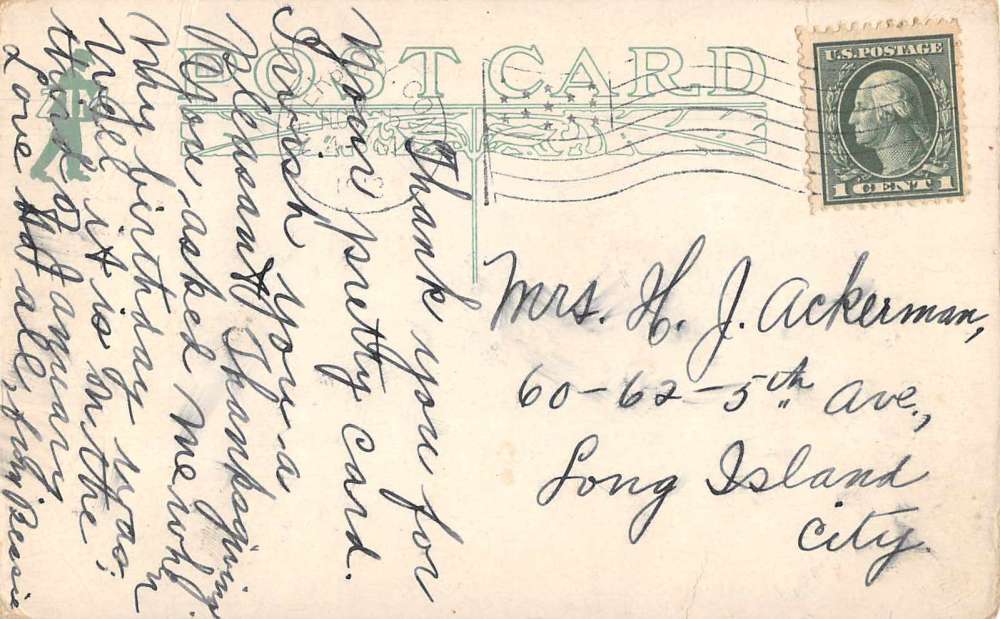 POST CARD
U.S. POSTAGE
1 CENT 1
Thank you for
your pretty card.
I wish you a
Pleasant Thanksgiving.
You asked me when
My birthday was;
Well it is on the
third of January
Love to all, Bessie
Mrs. H. J. Ackerman,
60-62-5th Ave.,
Long Island
City.